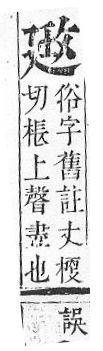 俗字舊註丈梗
切棖上聲盡也
誤